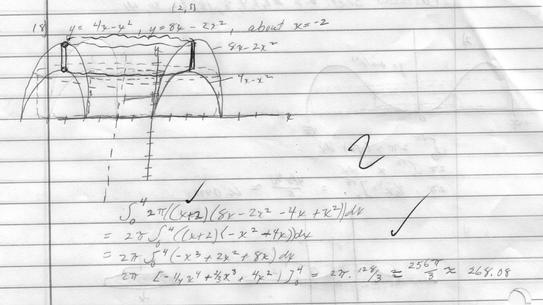 (2, 8)
18) y = 4x-x², y = 8x - 2x², about x = -2
8x-2x²
4x-x²
x
2
∫₀⁴ 2π((x+2)(8x - 2x² - 4x + x²))dx
= 2π ∫₀⁴ ((x+2)(-x² + 4x))dx
= 2π ∫₀⁴ (-x³ + 2x² + 8x)dx
2π [-1/4x⁴ + 2/3x³ + 4x²)]₀⁴ = 2π · 128/3 = 256π/3 ≈ 268.08